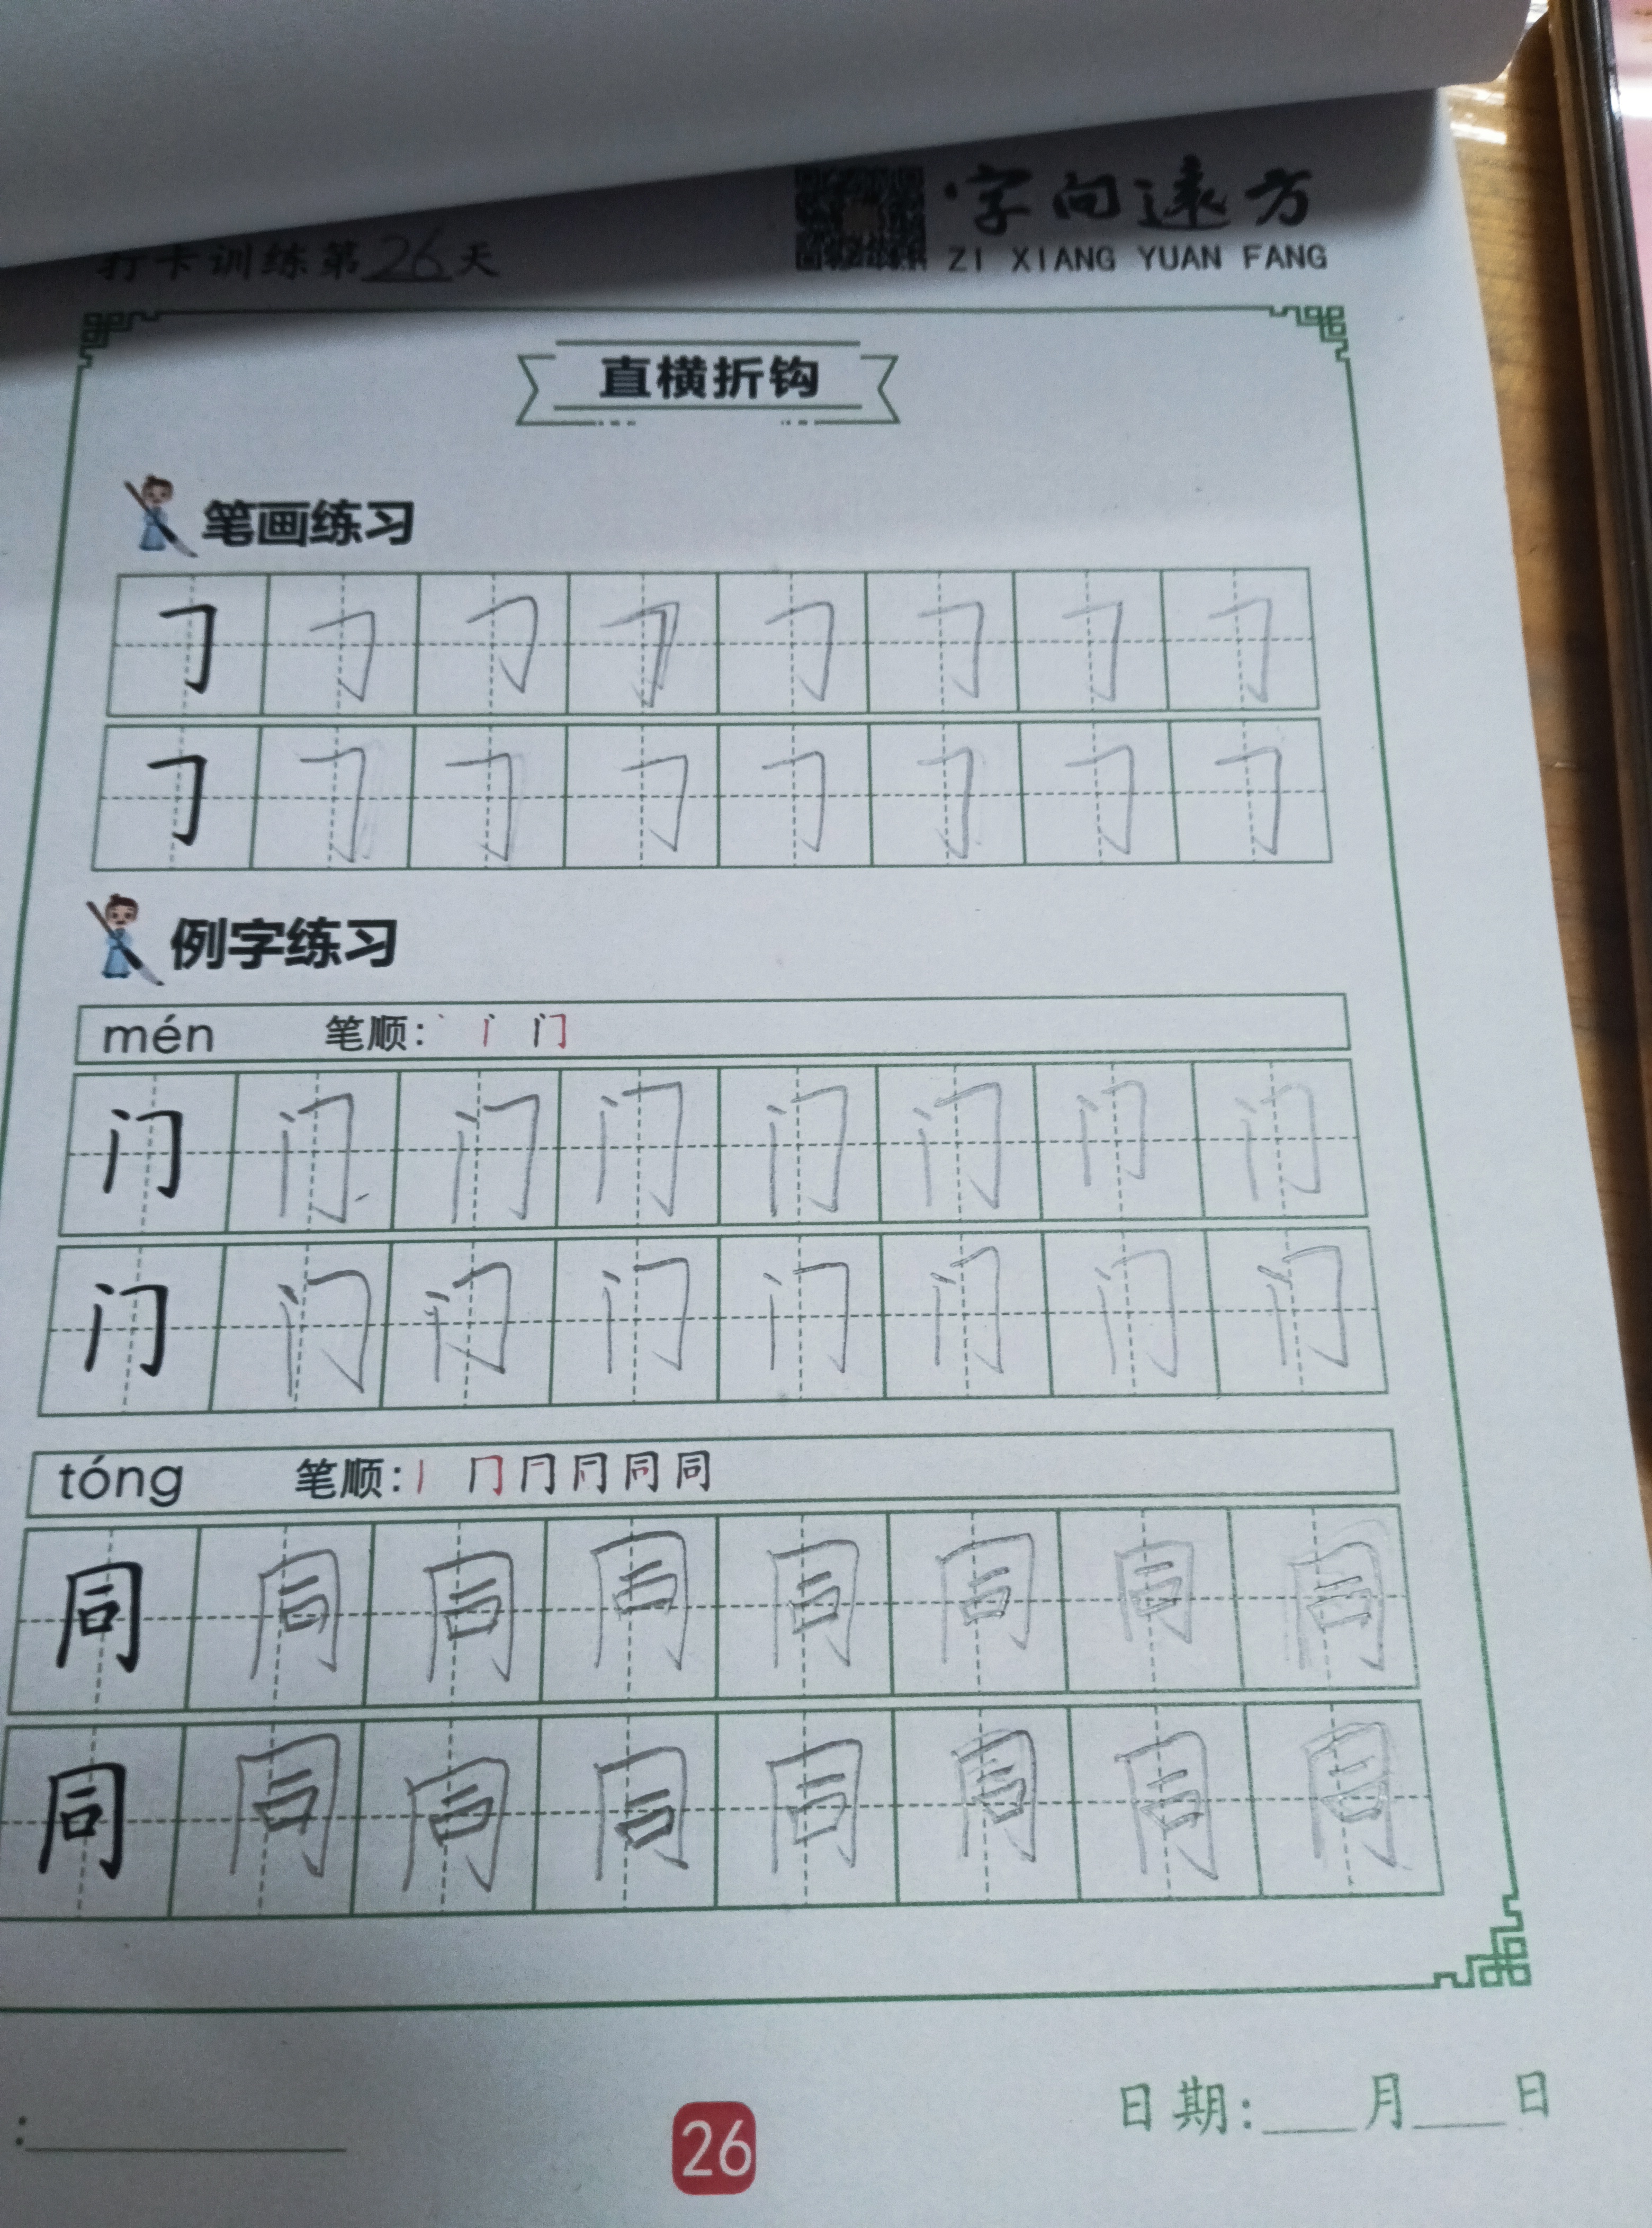 字向遠方
ZI XIANG YUAN FANG
打卡训练第26天
直横折钩
笔画练习
𠃌 𠃌 𠃌 𠃌 𠃌 𠃌 𠃌 𠃌
𠃌 𠃌 𠃌 𠃌 𠃌 𠃌 𠃌 𠃌
例字练习
mén 笔顺: 丶 门
门 门 门 门 门 门 门 门
门 门 门 门 门 门 门 门
tóng 笔顺: 丨 冂 同 同
同 同 同 同 同 同 同 同
同 同 同 同 同 同 同 同
日期:___月___日
26